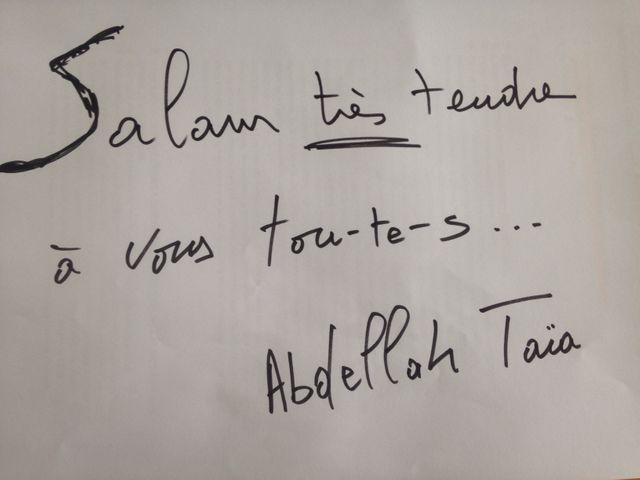 Salam très tendre
à vous tou-te-s...
Abdellah Taïa